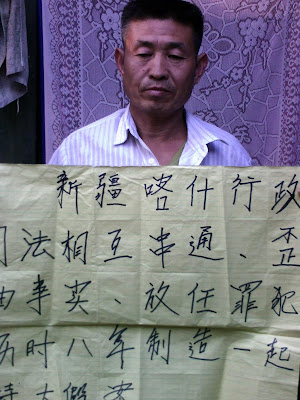 新疆喀什行政
司法相互串通、歪
曲事实、放任罪犯
历时八年制造一起
特大假案